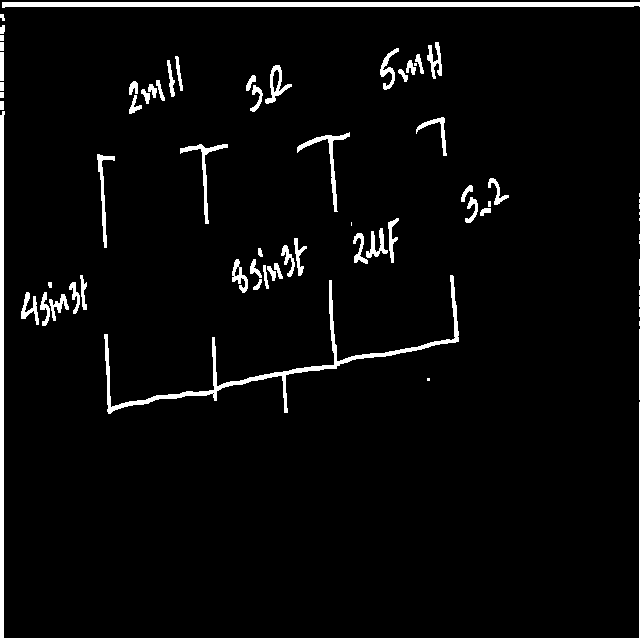 2mH 3Ω 5mH
4sin3t 8sin3t 2μF 3Ω